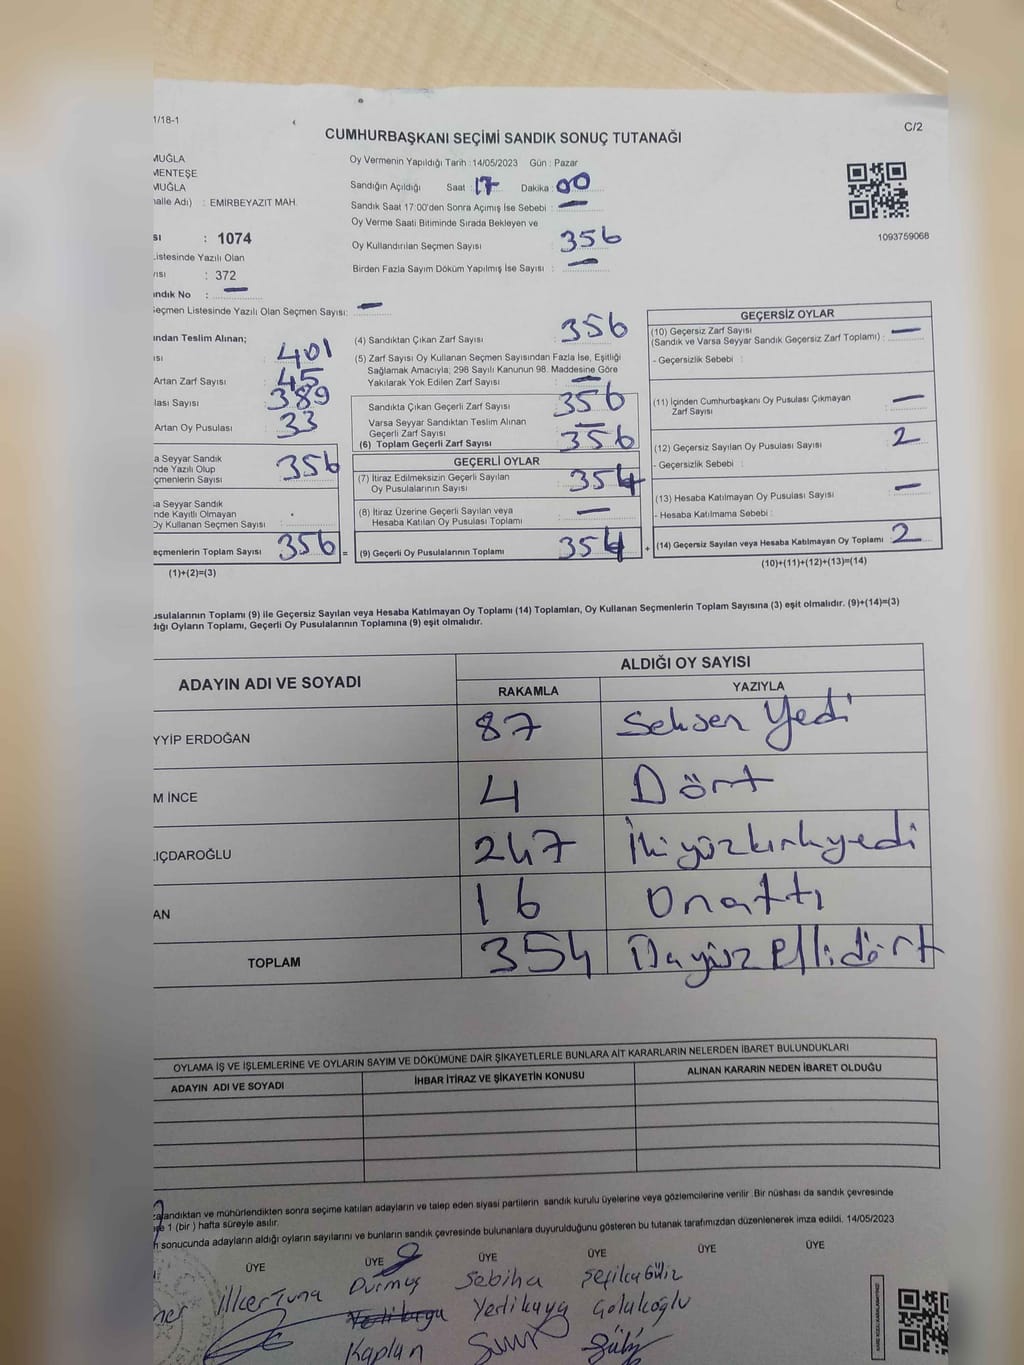 1/18-1
C/2
CUMHURBAŞKANI SEÇİMİ SANDIK SONUÇ TUTANAĞI
MUĞLA
MENTEŞE
MUĞLA
alle Adı) : EMİRBEYAZIT MAH.
sı : 1074
istesinde Yazılı Olan
yısı : 372
ndık No : —
eçmen Listesinde Yazılı Olan Seçmen Sayısı: —
Oy Vermenin Yapıldığı Tarih : 14/05/2023 Gün : Pazar
Sandığın Açıldığı Saat : 17 Dakika : 00
Sandık Saat 17:00'den Sonra Açımış İse Sebebi : —
Oy Verme Saati Bitiminde Sırada Bekleyen ve
Oy Kullandırılan Seçmen Sayısı : 356
Birden Fazla Sayım Döküm Yapılmış İse Sayısı : —
1093759068
ından Teslim Alınan;
sı 401
Artan Zarf Sayısı 45
lası Sayısı 389
Artan Oy Pusulası 33
a Seyyar Sandık
nde Yazılı Olup
çmenlerin Sayısı 356
a Seyyar Sandık
nde Kayıtlı Olmayan
Oy Kullanan Seçmen Sayısı :
eçmenlerin Toplam Sayısı 356 =
(1)+(2)=(3)
(4) Sandıktan Çıkan Zarf Sayısı : 356
(5) Zarf Sayısı Oy Kullanan Seçmen Sayısından Fazla İse, Eşitliği
Sağlamak Amacıyla, 298 Sayılı Kanunun 98. Maddesine Göre
Yakılarak Yok Edilen Zarf Sayısı : —
Sandıkta Çıkan Geçerli Zarf Sayısı : 356
Varsa Seyyar Sandıktan Teslim Alınan
Geçerli Zarf Sayısı : —
(6) Toplam Geçerli Zarf Sayısı : 356
GEÇERLİ OYLAR
(7) İtiraz Edilmeksizin Geçerli Sayılan
Oy Pusulalarının Sayısı : 354
(8) İtiraz Üzerine Geçerli Sayılan veya
Hesaba Katılan Oy Pusulası Toplamı : —
(9) Geçerli Oy Pusulalarının Toplamı : 354 +
GEÇERSİZ OYLAR
(10) Geçersiz Zarf Sayısı
(Sandık ve Varsa Seyyar Sandık Geçersiz Zarf Toplamı) : —
- Geçersizlik Sebebi :
(11) İçinden Cumhurbaşkanı Oy Pusulası Çıkmayan
Zarf Sayısı : —
(12) Geçersiz Sayılan Oy Pusulası Sayısı : 2
- Geçersizlik Sebebi :
(13) Hesaba Katılmayan Oy Pusulası Sayısı : —
- Hesaba Katılmama Sebebi :
(14) Geçersiz Sayılan veya Hesaba Katılmayan Oy Toplamı : 2
(10)+(11)+(12)+(13)=(14)
usulalarının Toplamı (9) ile Geçersiz Sayılan veya Hesaba Katılmayan Oy Toplamı (14) Toplamları, Oy Kullanan Seçmenlerin Toplam Sayısına (3) eşit olmalıdır. (9)+(14)=(3)
dığı Oyların Toplamı, Geçerli Oy Pusulalarının Toplamına (9) eşit olmalıdır.
ADAYIN ADI VE SOYADI
ALDIĞI OY SAYISI
RAKAMLA YAZIYLA
YYİP ERDOĞAN 87 Seksen Yedi
M İNCE 4 Dört
IÇDAROĞLU 247 İkiyüzkırkyedi
AN 16 Onaltı
TOPLAM 354 ellidört
OYLAMA İŞ VE İŞLEMLERİNE VE OYLARIN SAYIM VE DÖKÜMÜNE DAİR ŞİKAYETLERLE BUNLARA AİT KARARLARIN NELERDEN İBARET BULUNDUKLARI
ADAYIN ADI VE SOYADI İHBAR İTİRAZ VE ŞİKAYETİN KONUSU ALINAN KARARIN NEDEN İBARET OLDUĞU
andıktan ve mühürlendikten sonra seçime katılan adayların ve talep eden siyasi partilerin sandık kurulu üyelerine veya gözlemcilerine verilir. Bir nüshası da sandık çevresinde
1 (bir) hafta süreyle asılır.
sonucunda adayların aldığı oyların sayılarını ve bunların sandık çevresinde bulunanlara duyurulduğunu gösteren bu tutanak tarafımızdan düzenlenerek imza edildi. 14/05/2023
ÜYE ÜYE ÜYE ÜYE ÜYE ÜYE
İlker Tuna Durmuş Sebiha
Kaplan Yerlikaya